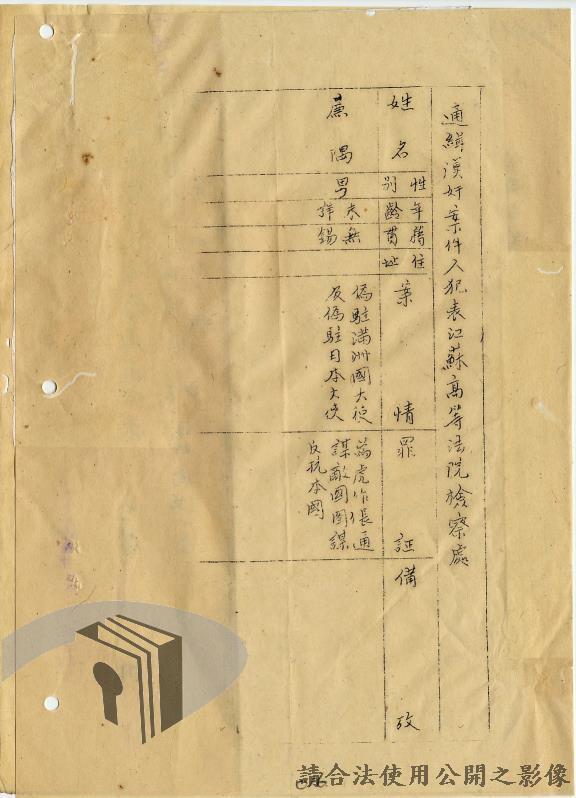 通緝漢奸案件人犯表江蘇高等法院檢察處
姓名
性別
年齡
籍貫
住址
案情
罪証
備攷
廉隅
男
未詳
無錫
偽駐滿洲國大使
及偽駐日本大使
為虎作倀通
謀敵國圖謀
反抗本國
請合法使用公開之影像